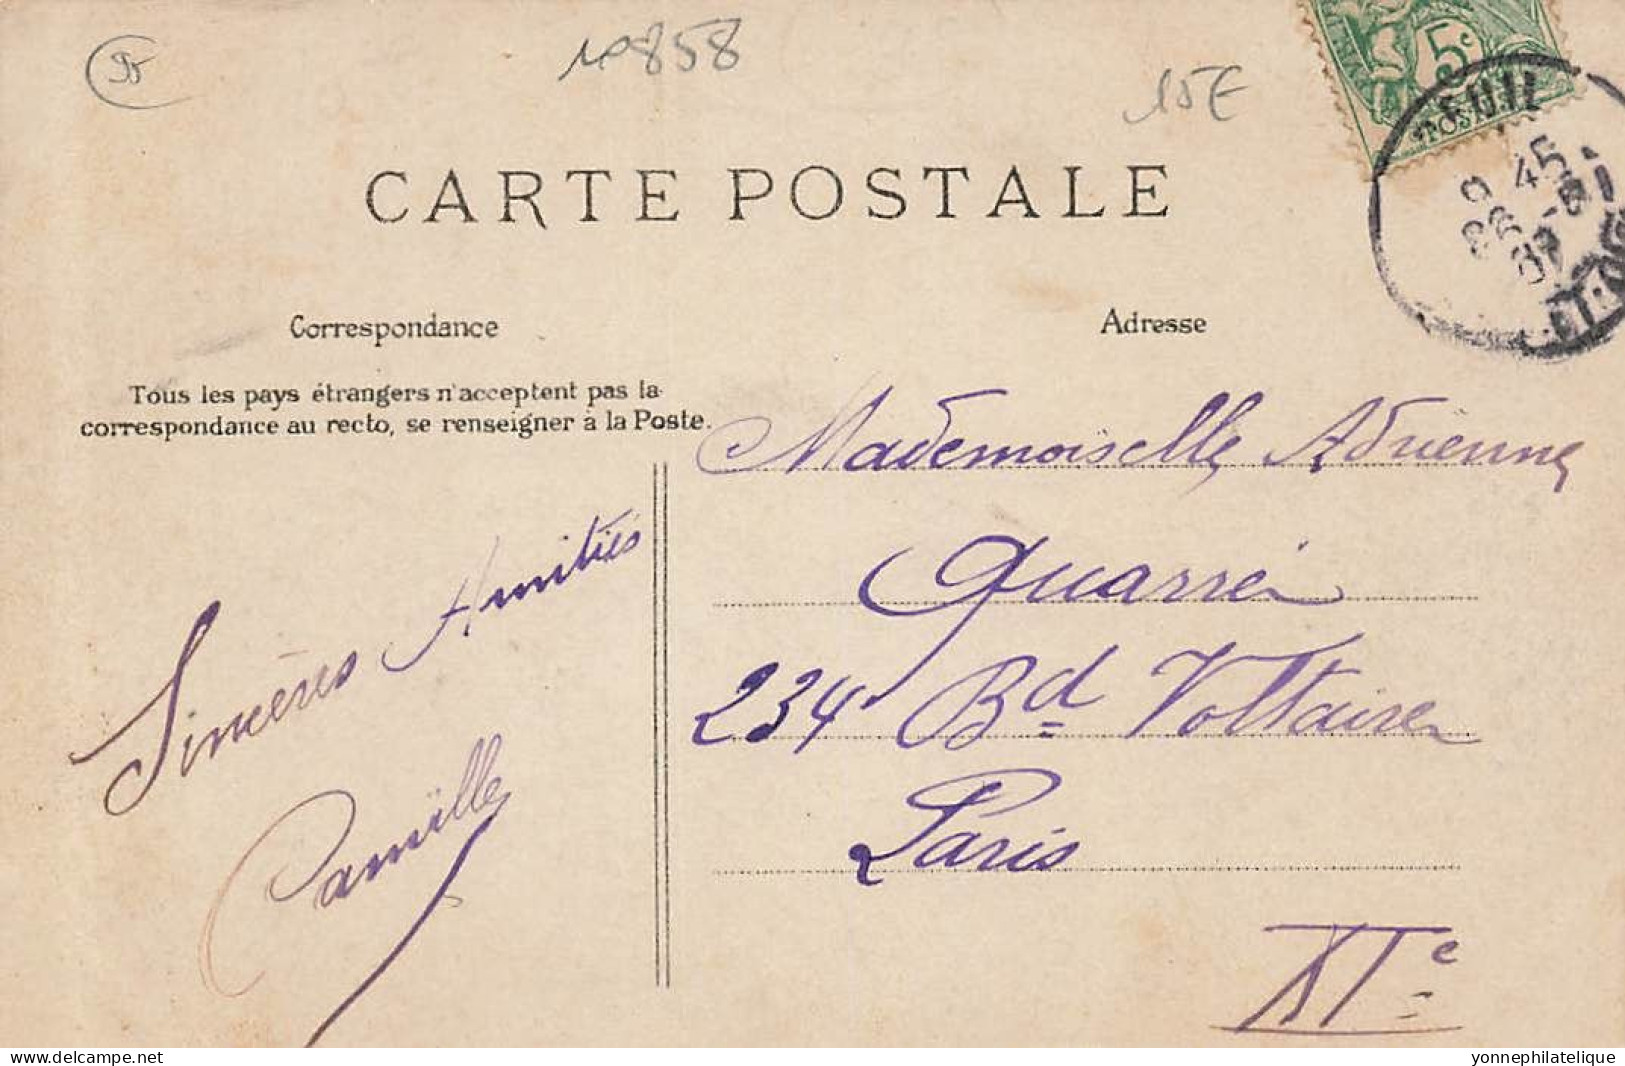 95
10858
15€
5c
POSTES
EUIL
CARTE POSTALE
9 45
Correspondance
Adresse
Tous les pays étrangers n'acceptent pas la
correspondance au recto, se renseigner à la Poste.
Mademoiselle Adrienne
Quarré
234 Bd Voltaire
Paris
XIe
Sincères Amitiés
Camille
www.delcampe.net
yonnephilatelique